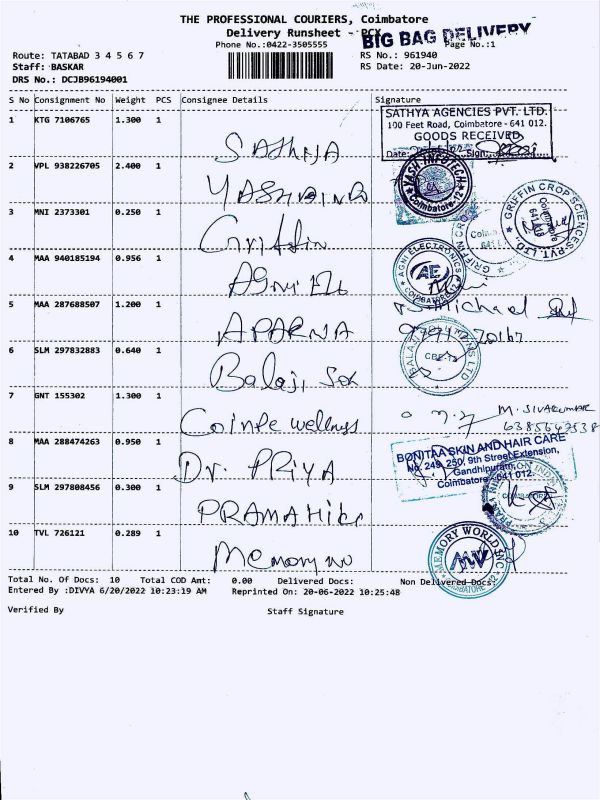 THE PROFESSIONAL COURIERS, Coimbatore
Delivery Runsheet - PCX
BIG BAG DELIVERY
Phone No.:0422-3505555
Page No.:1
Route: TATABAD 3 4 5 6 7
RS No.: 961940
Staff: BASKAR
RS Date: 20-Jun-2022
DRS No.: DCJB96194001
S No Consignment No Weight PCS Consignee Details Signature
1 KTG 7106765 1.300 1
SATHYA AGENCIES PVT. LTD.
100 Feet Road, Coimbatore - 641 012.
GOODS RECEIVED
Date: Sign:
SATHYA
2 VPL 938226705 2.400 1
YASH INFOTECH
Coimbatore-12
3 MNI 2373301 0.250 1
Griffin
GRIFFIN CROP SCIENCES PVT. LTD.
Coimbatore
4 MAA 940185194 0.956 1
AGNI ELECTRONICS
AE
COIMBATORE-12
5 MAA 287688507 1.200 1
APARNA
Michael
6 SLM 297832883 0.640 1
Balaji
BALAJI
7 GNT 155302 1.300 1
wellness
M. SIVAKUMAR
8 MAA 288474263 0.950 1
Dr. PRIYA
BONITAA SKIN AND HAIR CARE
No. 249, 250, 9th Street Extension,
Gandhipuram,
Coimbatore - 641 012.
9 SLM 297808456 0.300 1
10 TVL 726121 0.289 1
Memory
MEMORY WORLD SVC
MW
COIMBATORE-12
Total No. Of Docs: 10 Total COD Amt: 0.00 Delivered Docs: Non Delivered Docs:
Entered By :DIVYA 6/20/2022 10:23:19 AM Reprinted On: 20-06-2022 10:25:48
Verified By Staff Signature